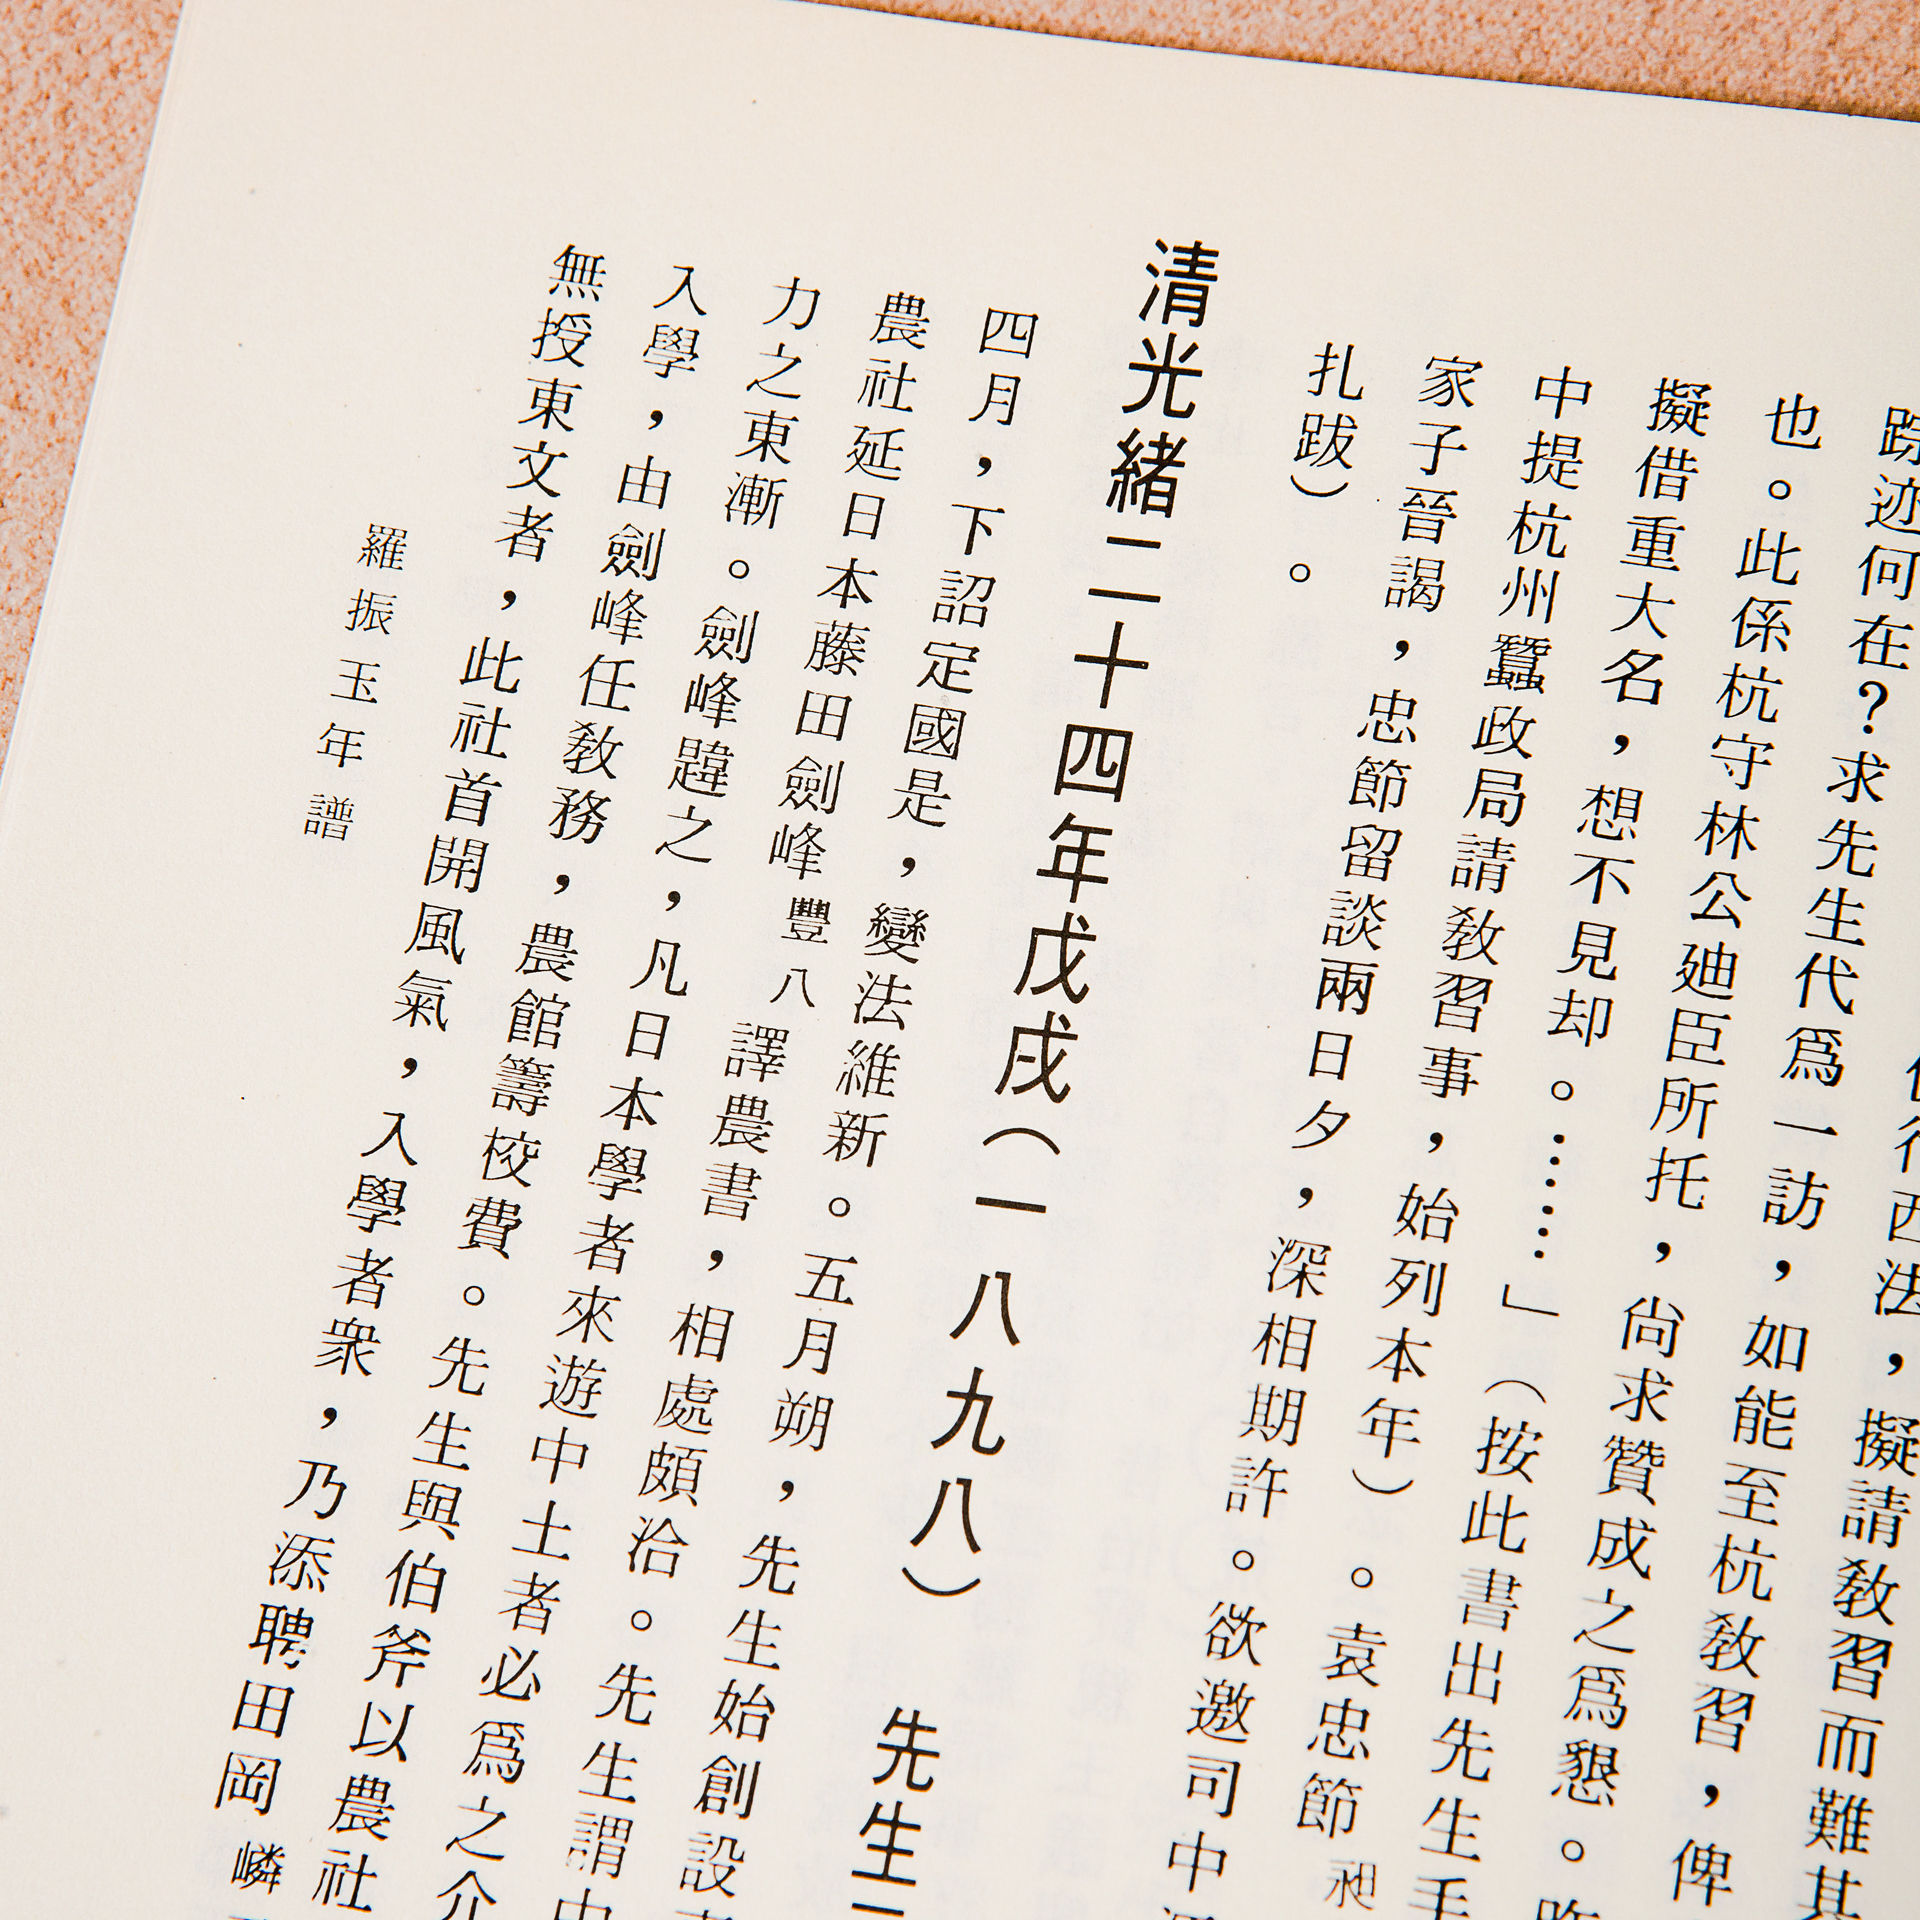 行西法，擬請教習而難其
踪迹何在？求先生代爲一訪，如能至杭教習，俾
也。此係杭守林公廸臣所托，尚求贊成之爲懇。昨
擬借重大名，想不見却。……」（按此書出先生手
中提杭州蠶政局請教習事，始列本年）。袁忠節昶
家子晉謁，忠節留談兩日夕，深相期許。欲邀司中
扎跋）。
清光緒二十四年戊戌（一八九八）　先生
四月，下詔定國是，變法維新。五月朔，先生始創設
農社延日本藤田劍峰豐八譯農書，相處頗洽。先生謂中
力之東漸。劍峰韙之，凡日本學者來遊中土者必爲之介
入學，由劍峰任教務，農館籌校費。先生與伯斧以農社
無授東文者，此社首開風氣，入學者衆，乃添聘田岡嶙
羅振玉年譜